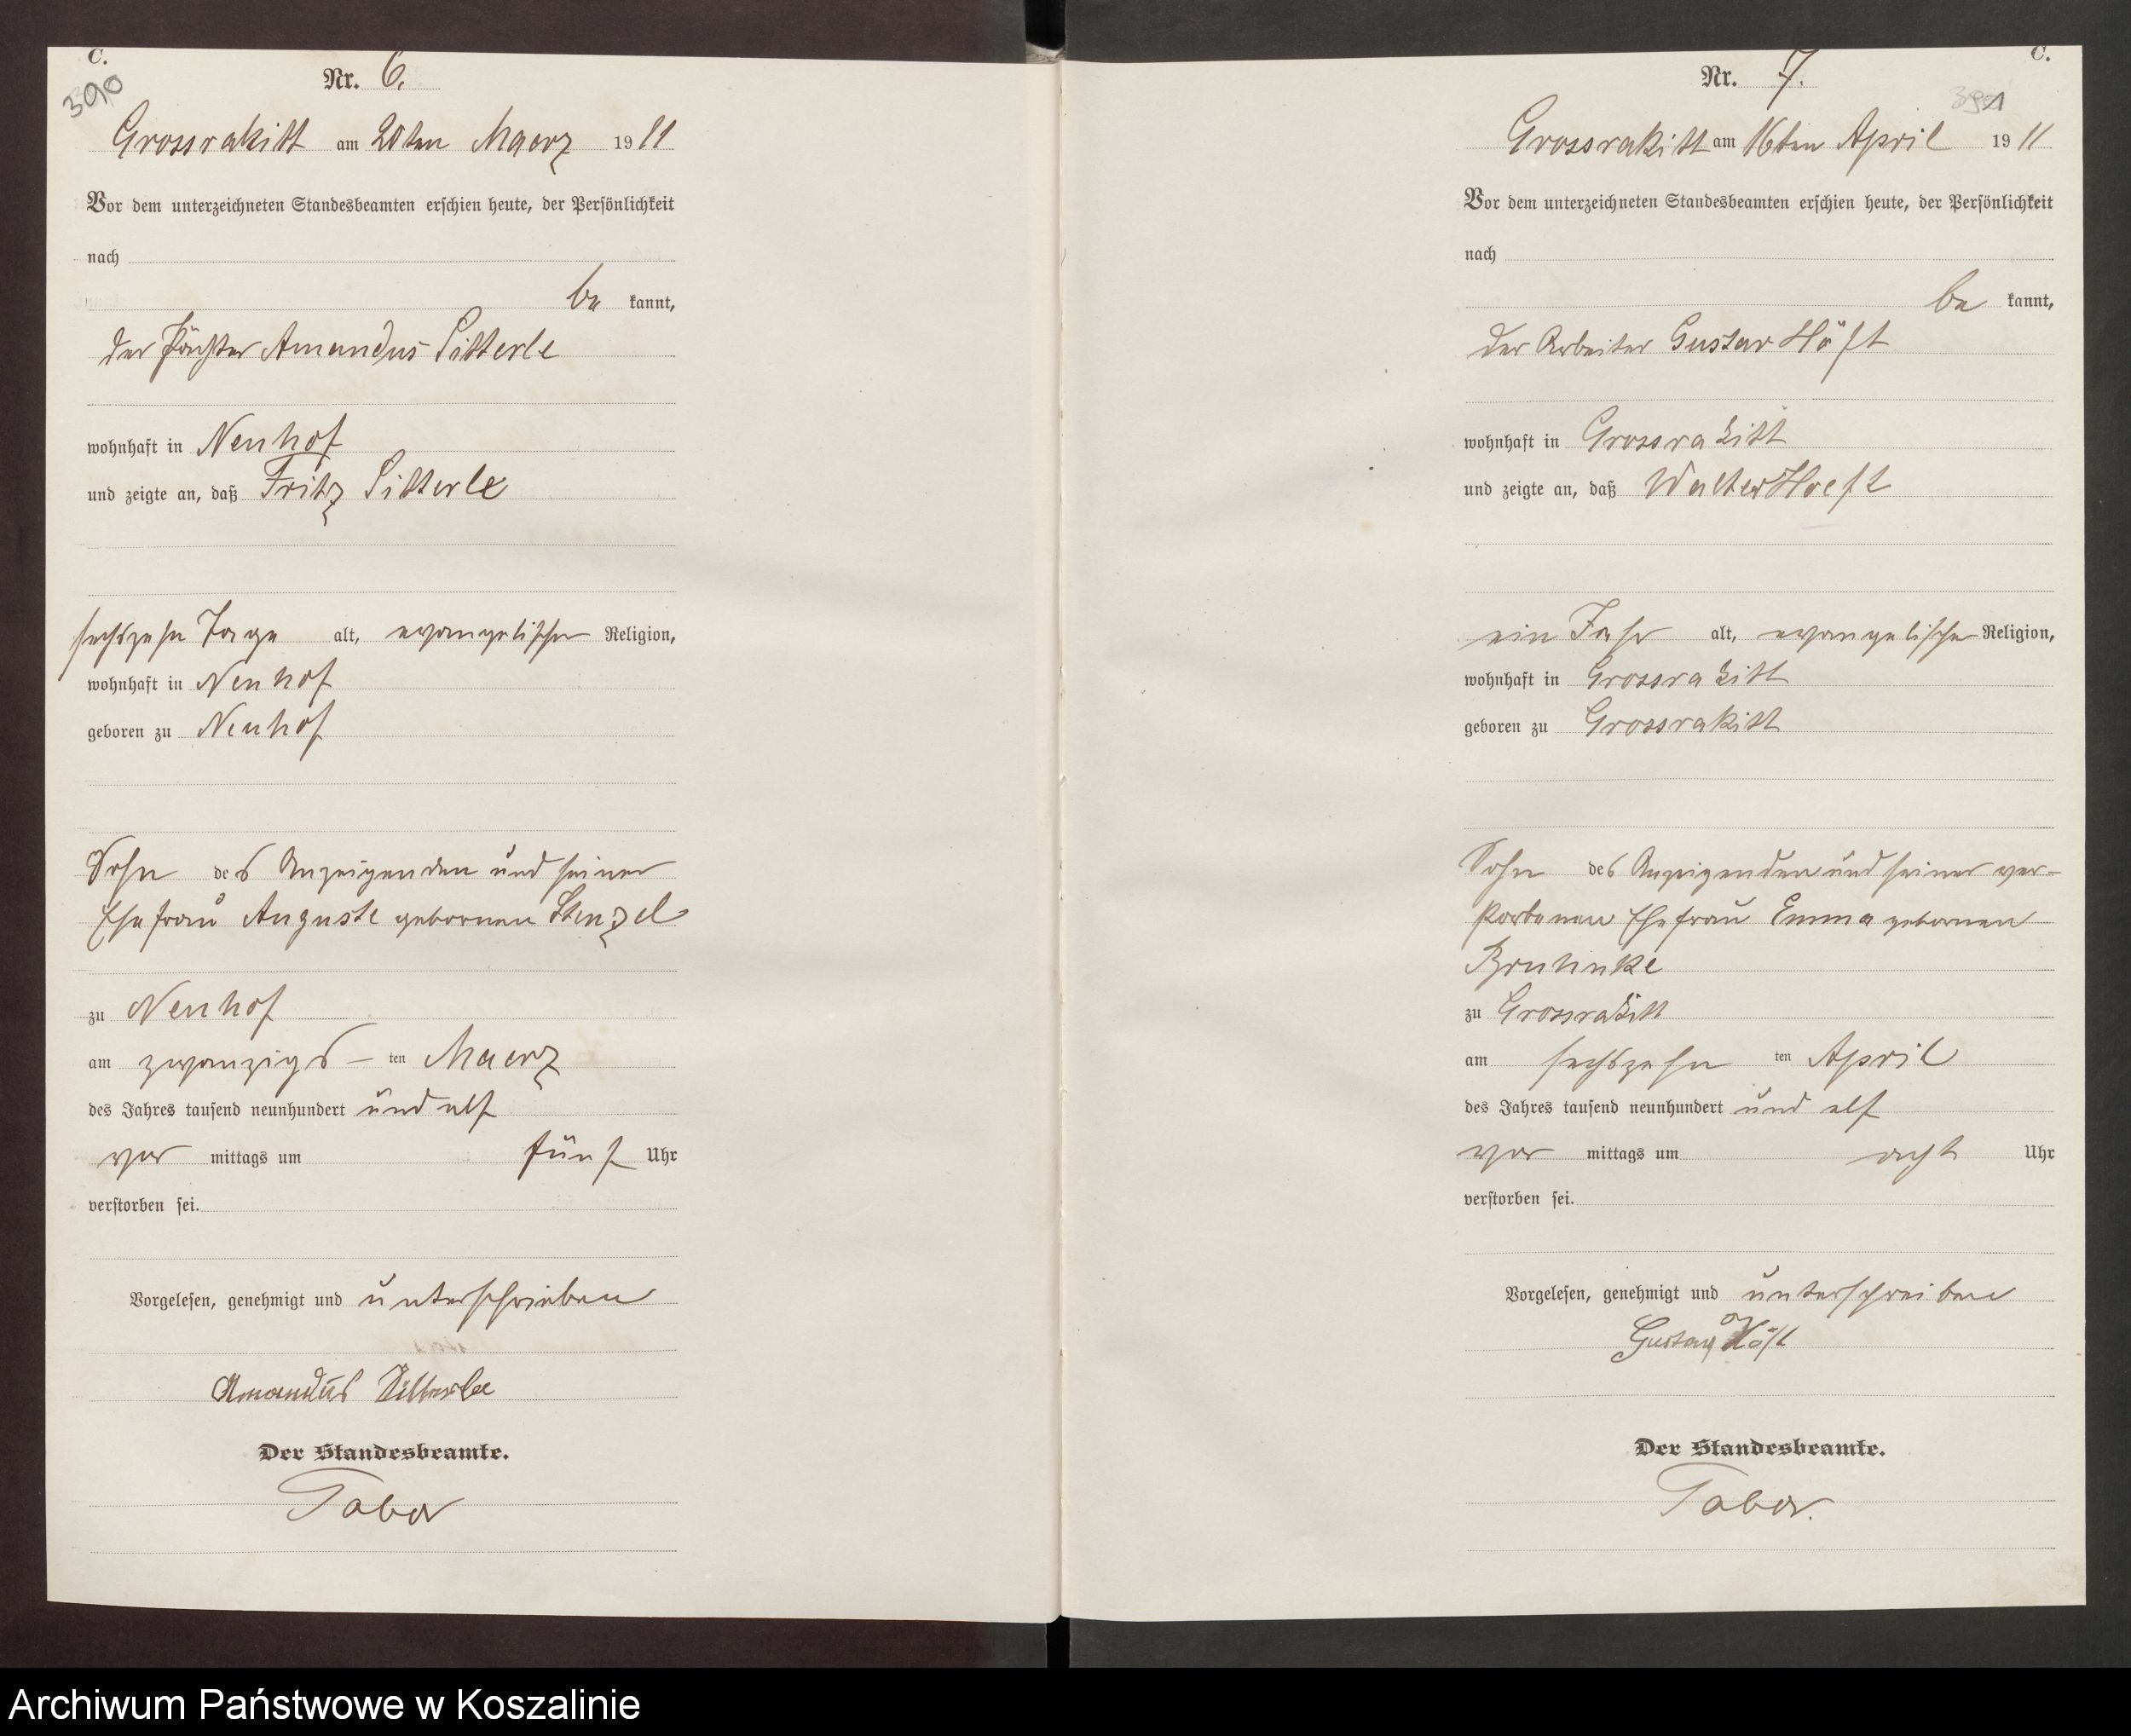 C.
390
Nr. 6.
Grossrakitt am 20ten Maerz 1911
Vor dem unterzeichneten Standesbeamten erschien heute, der Persönlichkeit
nach
be kannt,
der Pächter Amandus Litterle
wohnhaft in Neuhof
und zeigte an, daß Fritz Litterle
sechszehn Tage alt, evangelischer Religion,
wohnhaft in Neuhof
geboren zu Neuhof
Sohn des Anzeigenden und seiner
Ehefrau Auguste gebornen Stenzel
zu Neuhof
am zwanzigs – ten Maerz
des Jahres tausend neunhundert und elf
vor mittags um fünf Uhr
verstorben sei.
Vorgelesen, genehmigt und unterschrieben
Amandus Litterle
Der Standesbeamte.
Tabor
C.
391
Nr. 7.
Grossrakitt am 16ten April 1911
Vor dem unterzeichneten Standesbeamten erschien heute, der Persönlichkeit
nach
be kannt,
der Arbeiter Gustav Höft
wohnhaft in Grossrakitt
und zeigte an, daß Walter Hoeft
ein Jahr alt, evangelischer Religion,
wohnhaft in Grossrakitt
geboren zu Grossrakitt
Sohn des Anzeigenden und seiner ver-
storbenen Ehefrau Emma gebornen
zu Grossrakitt
am sechszehn ten April
des Jahres tausend neunhundert und elf
vor mittags um acht Uhr
verstorben sei.
Vorgelesen, genehmigt und unterschrieben
Gustav Höft
Der Standesbeamte.
Tabor.
Archiwum Państwowe w Koszalinie